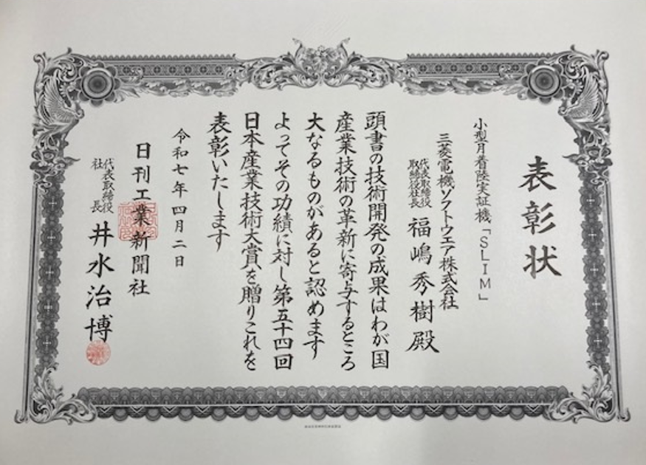 表彰状
小型月着陸実証機「SLIM」
三菱電機ソフトウエア株式会社
代表取締役
取締役社長
福嶋秀樹殿
頭書の技術開発の成果はわが国
産業技術の革新に寄与するところ
大なるものがあると認めます
よってその功績に対し第五十四回
日本産業技術大賞を贈りこれを
表彰いたします
令和七年四月二日
日刊工業新聞社
代表取締役
社長
井水治博